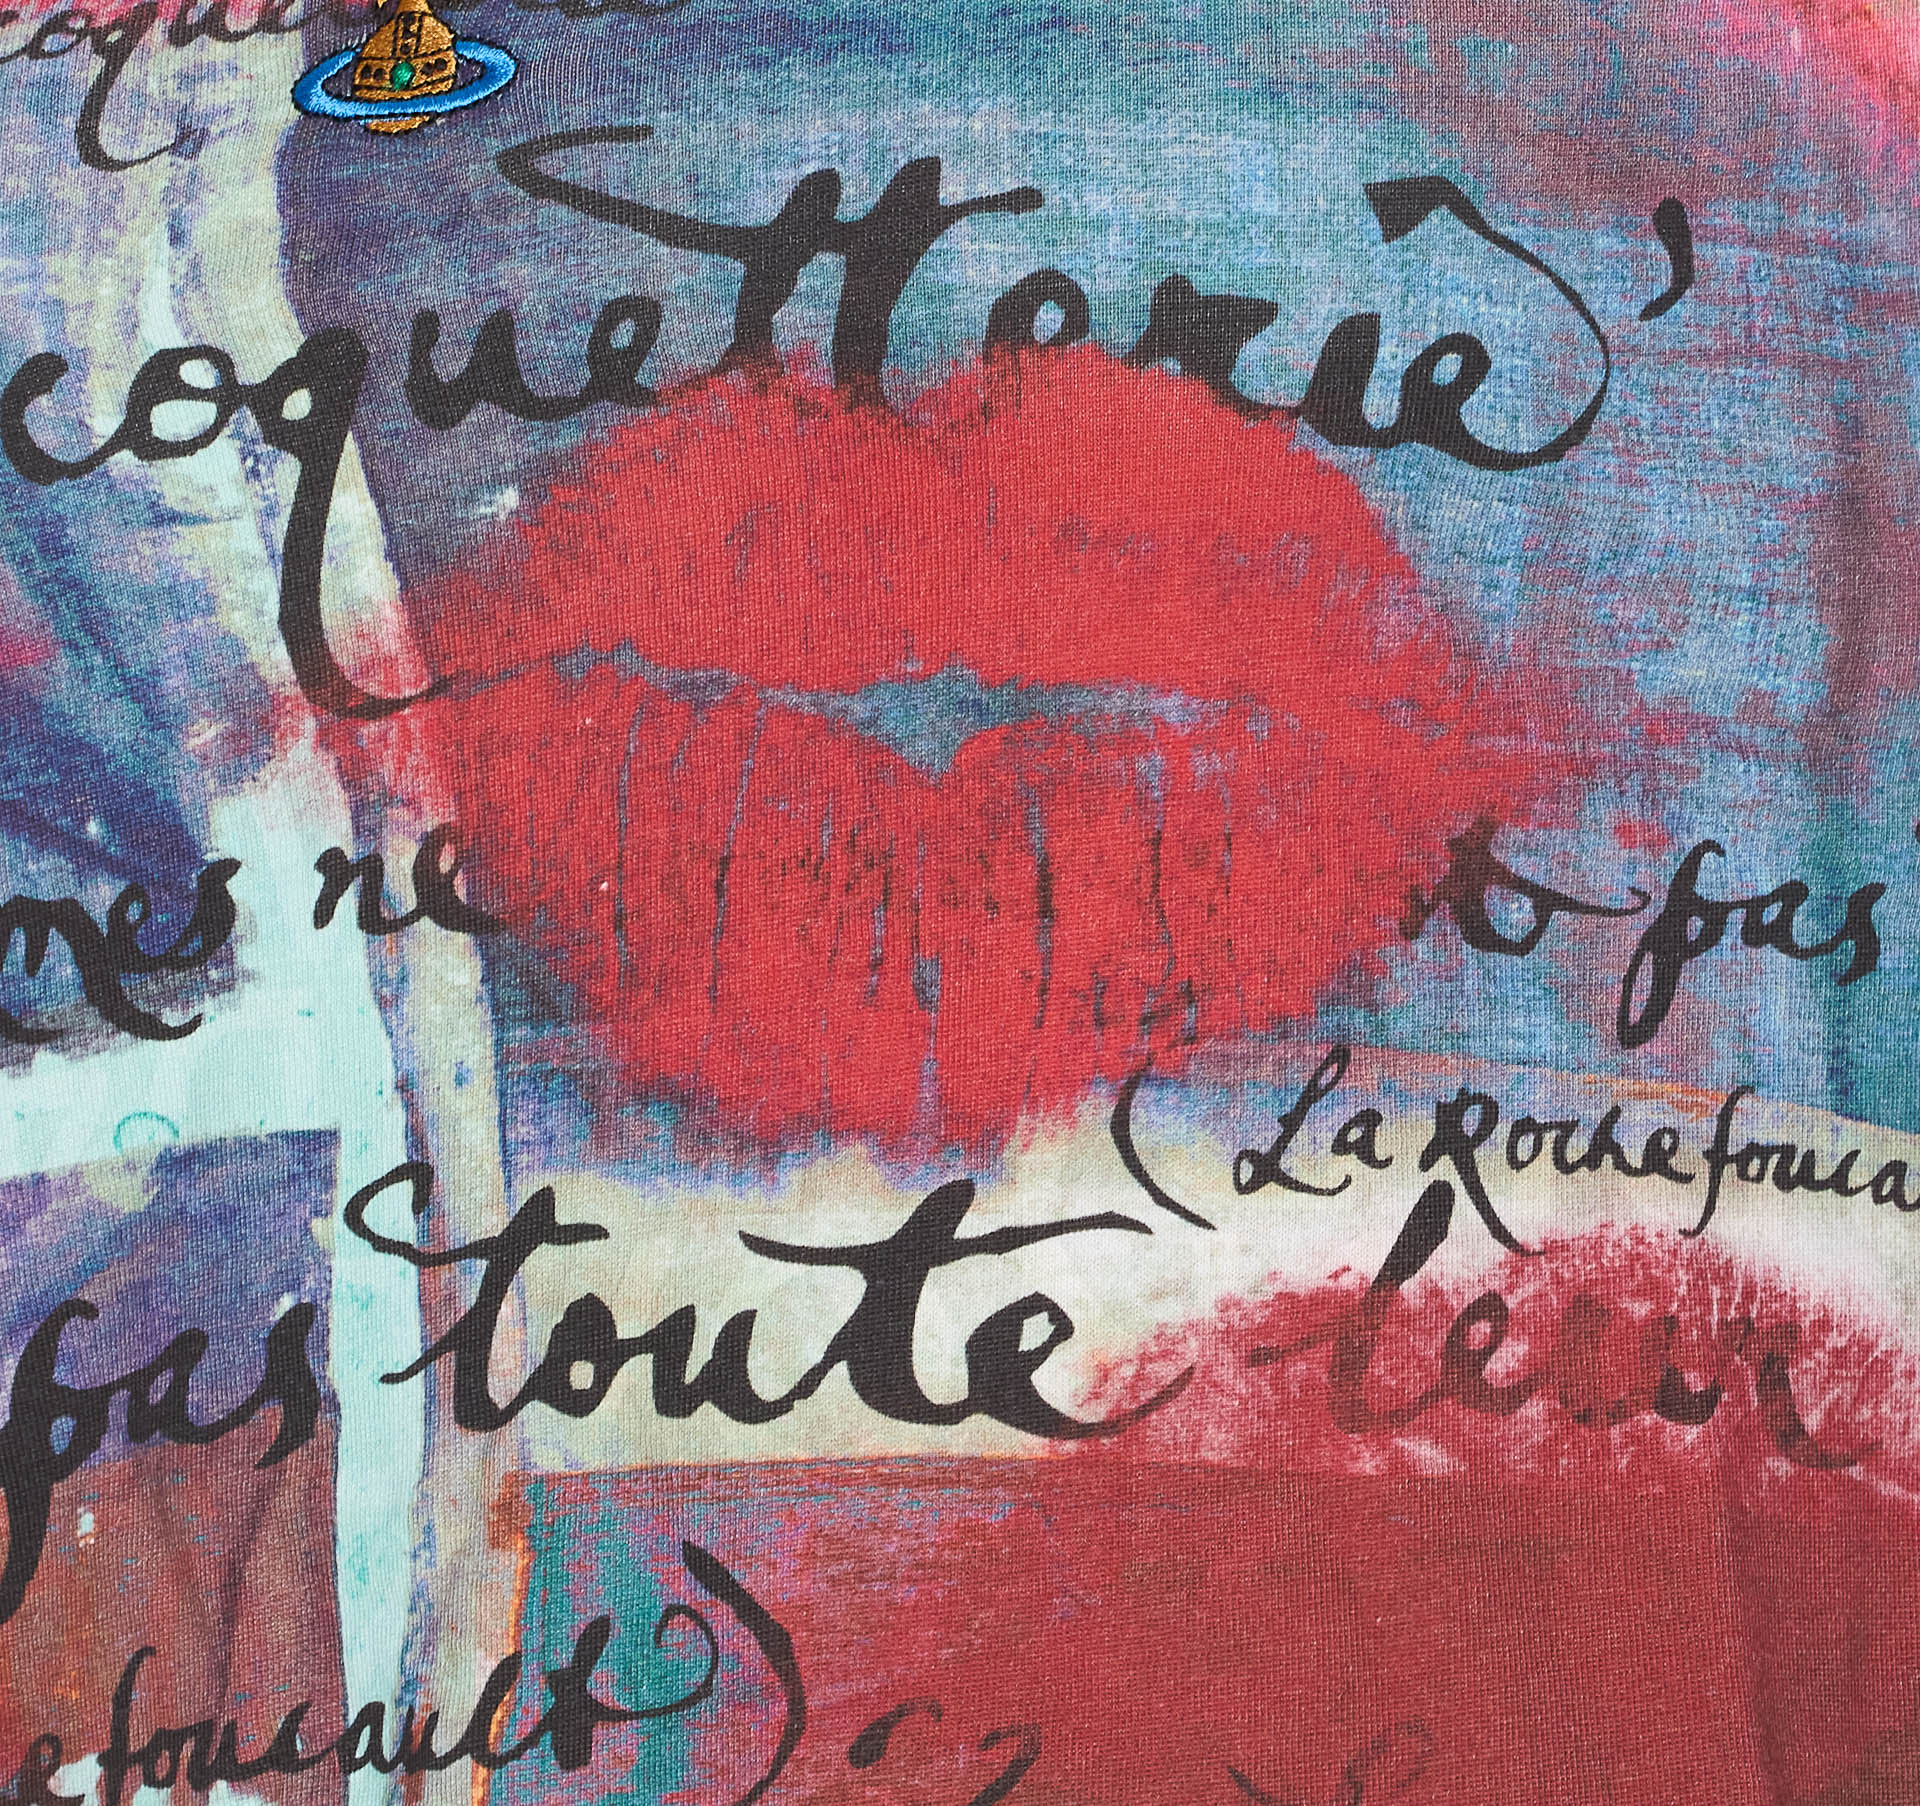 coquetterie'
mes ne
pas
(La Rochefouca
pas toute leur
efoucault)